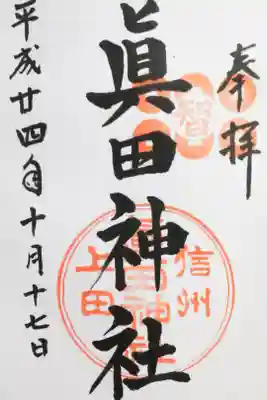 奉拝
智
眞田神社
信州
上田
眞田神社
平成廿四年十月十七日